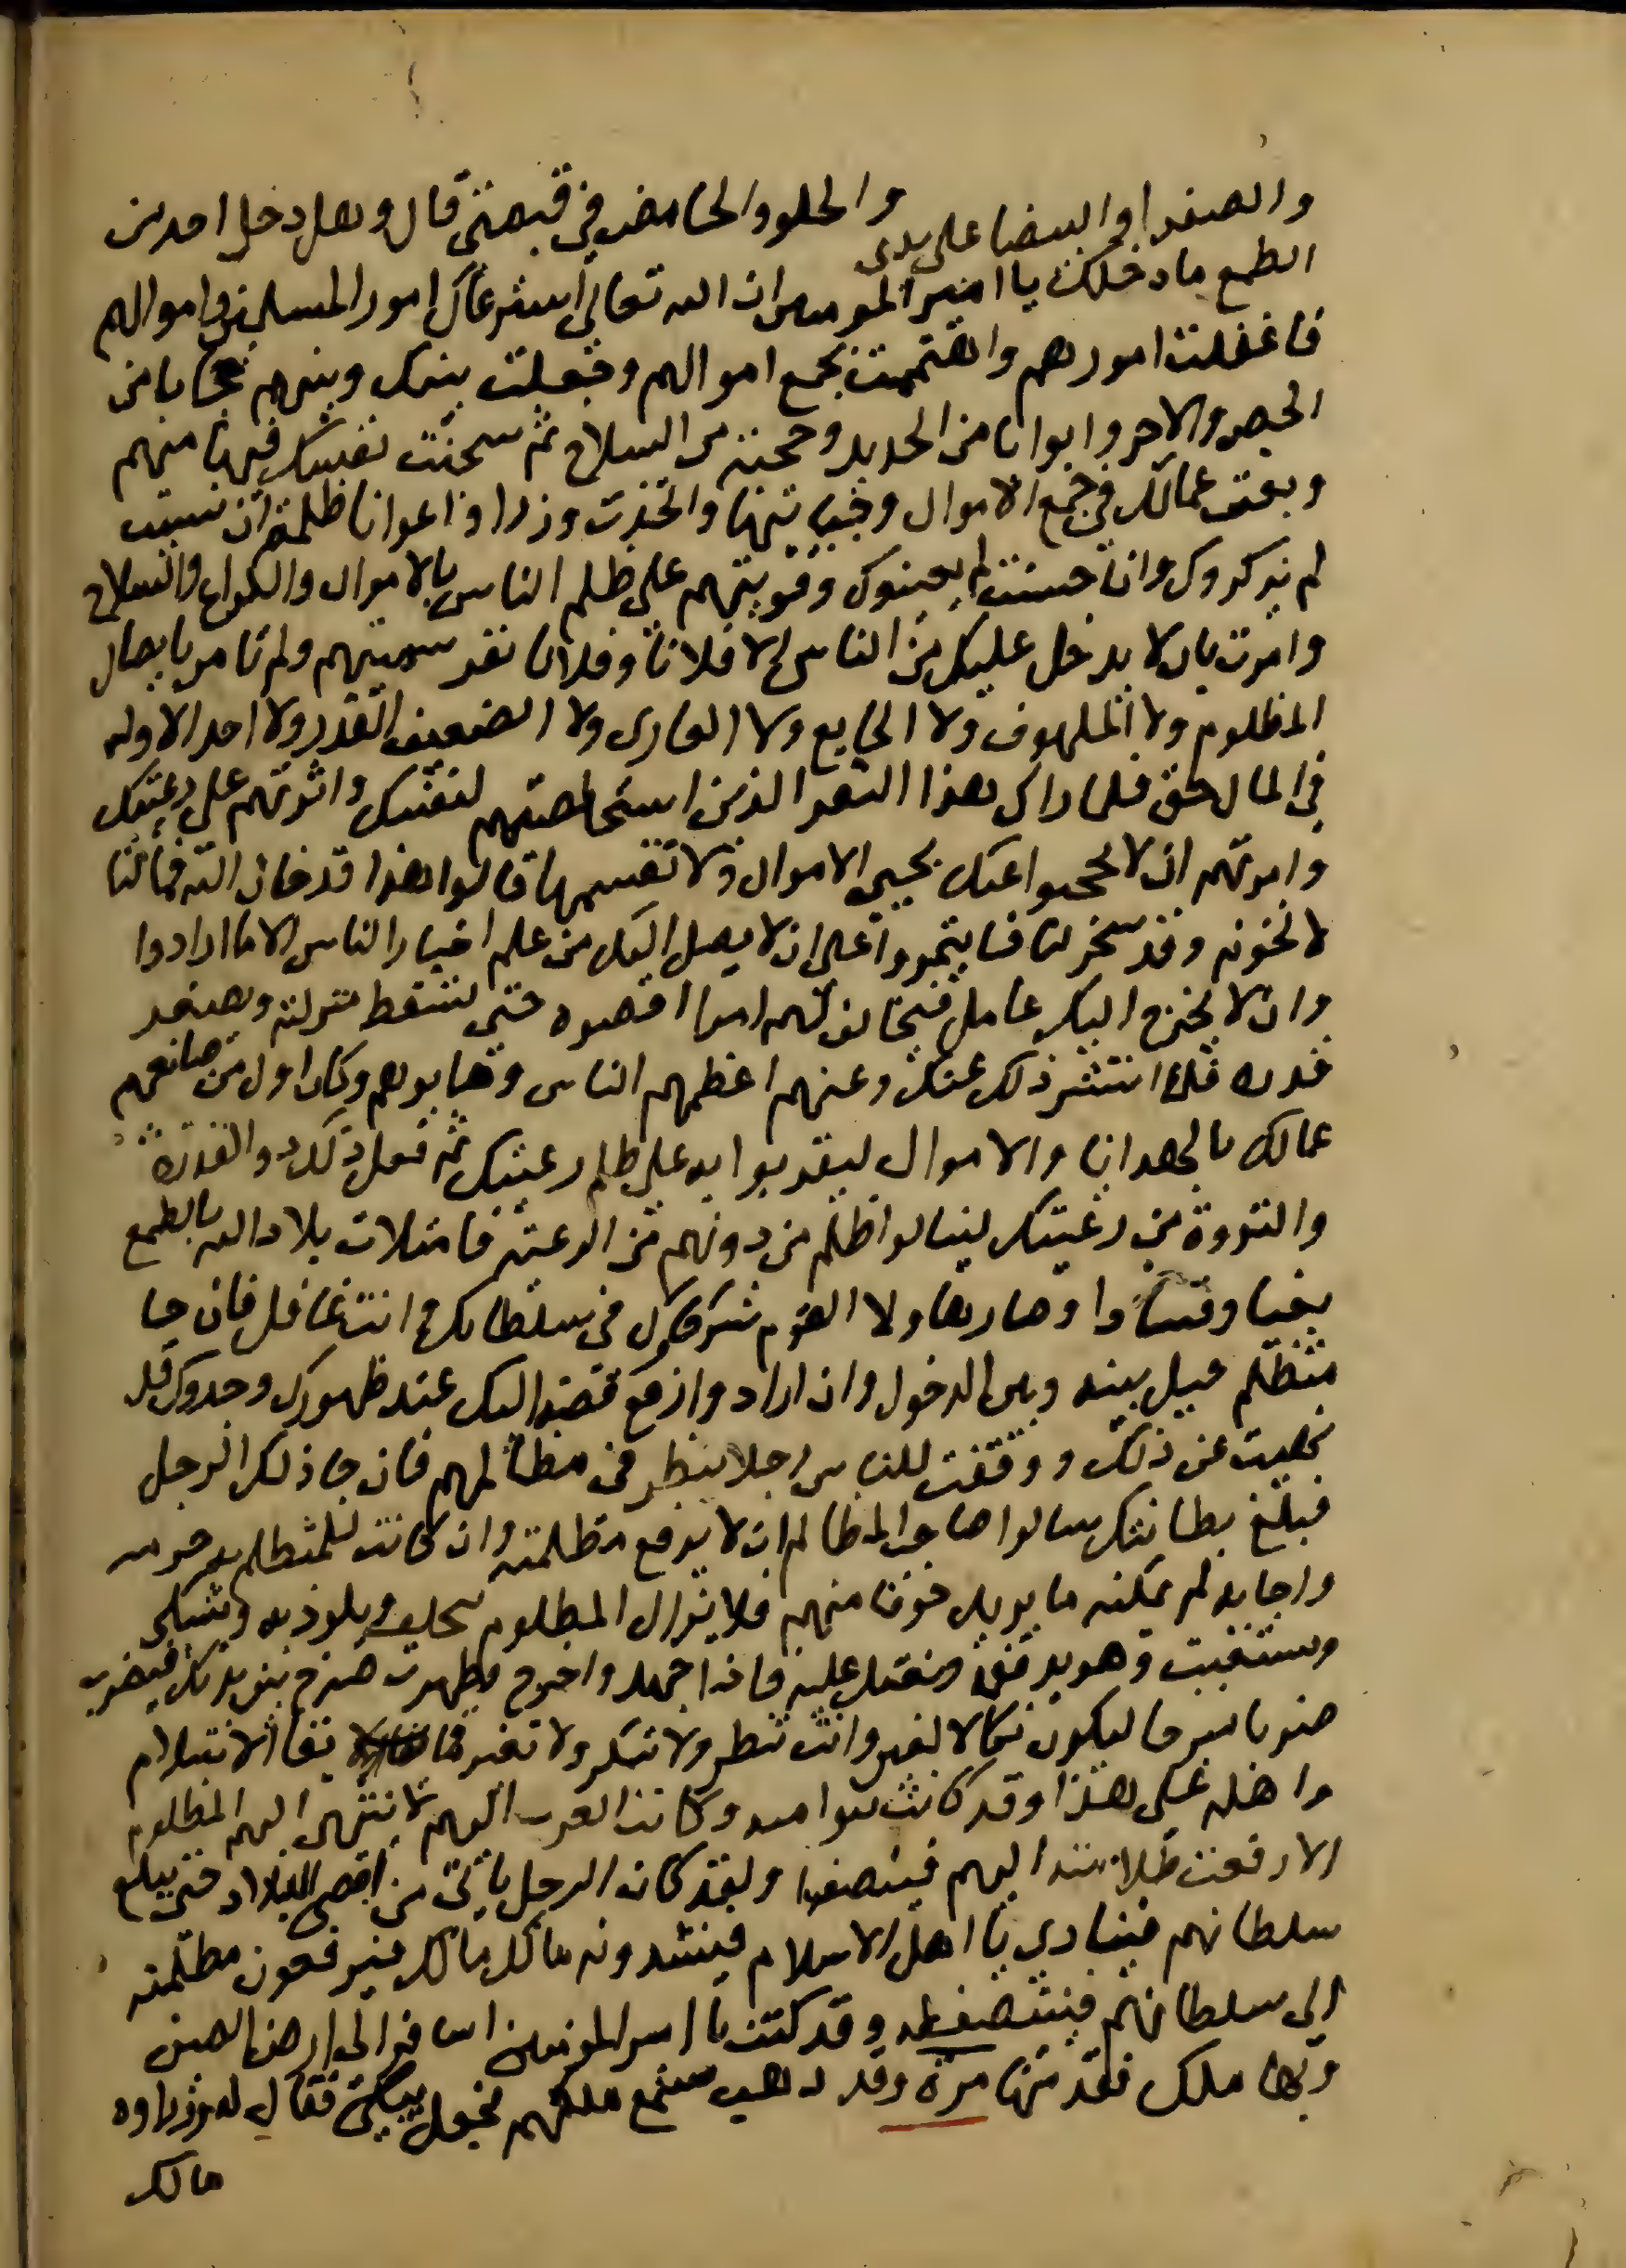 والصفرا والبيضا على يدى والحلو والحامض في قبضتي قال وهل دخل احد من
الطمع ما دخلك يا امير المومنين ان الله تعالى استرعاك امور المسلمين واموالهم
فاغفلت امورهم واهتممت بجمع اموالهم وجعلت بينك وبينهم حجابا من
الجص والاجر وابوابا من الحديد وحجبة من السلاح ثم سجنت نفسك فيها منهم
وبعثت عمالك في جمع الاموال وجبايتها واتخذت وزرا واعوانا ظلمة ان نسيت
لم يذكروك وان احسنت لم يعينوك وقويتهم على ظلم الناس بالاموال والكراع والسلاح
وامرت بان لا يدخل عليك من الناس الا فلانا وفلان نفر سميتهم ولم تامر بايصال
المظلوم ولا الملهوف ولا الجايع ولا العارى ولا الضعيف الفقير ولا احد الا وله
في المال حق فلما راك هذا النفر الذين استخلصتهم لنفسك واثرتهم على رعيتك
وامرتهم ان لا يحجبوا عنك تجبي الاموال ولا تقسمها قالوا هذا قد خان الله فمالنا
لا نخونه وقد سخر لنا فايتمروا على ان لا يصل اليك من علم اخبار الناس الا ما ارادوا
وان لا يخرج اليك عامل فيخالف لهم امرا اقصوه حتى تسقط منزلته ويصغر
قدره فلما انتشر ذلك عنك وعنهم اعظمهم الناس وهابوهم وكان اول من صانعهم
عمالك بالهدايا والاموال ليتقووا به على ظلم رعيتك ثم فعل ذلك ذوو القدرة
والثروة من رعيتك لينالوا ظلم من دونهم من الرعية فامتلات بلاد الله بالطمع
بغيا وفسادا وصار هاولا القوم شركاك في سلطانك وانت غافل فان جا
متظلم حيل بينه وبين الدخول وان اراد رفع قصة اليك عند ظهورك وجدوك قد
نهيت عن ذلك ووقفت للناس رجلا ينظر في مظالمهم فان جا ذلك الرجل
فبلغ بطانتك سالوا صاحب المظالم ان لا يرفع مظلمته وان كانت للمتظلم به حرمه
واجابه لم يمكنه ما يريد خوفا منهم فلا يزال المظلوم يختلف ويلوذ به ويشكى
ويستغيث وهو يدفعه ويعتل عليه فاذا جهد واخرج وظهرت صرخ بين يديك فيضرب
ضربا مبرحا ليكون نكالا لغيره وانت تنظر ولا تنكر ولا تغير فما بقا الاسلام
واهله على هذا وقد كانت بنوا اميه وكانت العرب اليهم لا ينتهى اليهم المظلوم
الا رفعت ظلامته اليهم فينصف ولقد كان الرجل ياتى من اقصى البلاد حتى يبلغ
سلطانهم فينادي يا اهل الاسلام فيبتدرونه مالك مالك فيرفعون مظلمته
الى سلطانهم فينتصف له وقد كنت يا امير المومنين اسافر الى ارض الصين
وبها ملك فقدمتها مرة وقد ذهب سمع ملكهم فجعل يبكى فقال له وزراوه
مالك